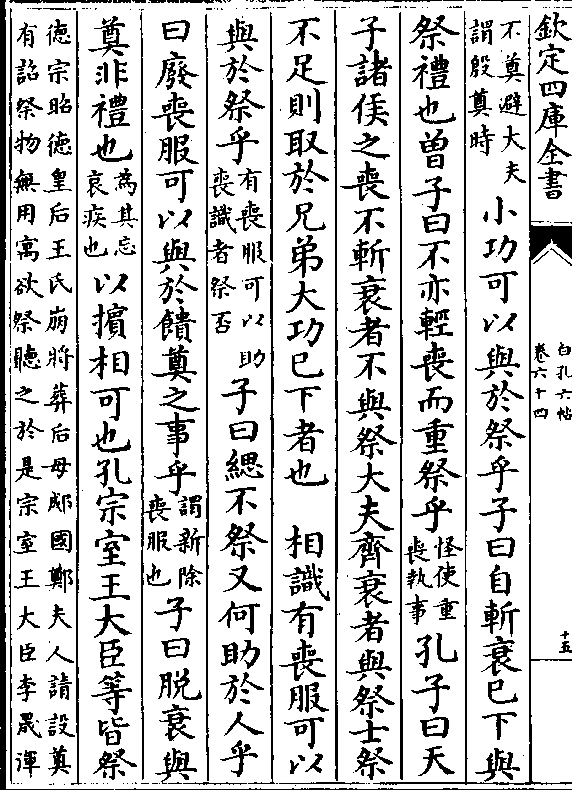 欽定四庫全書
白孔六帖
卷六十四
十五
不奠避大夫
謂殷奠時
小功可以與於祭乎子曰自斬衰已下與
祭禮也曾子曰不亦輕喪而重祭乎
怪使重
喪執事
孔子曰天
子諸侯之喪不斬衰者不與祭大夫齊衰者與祭士祭
不足則取於兄弟大功已下者也 相識有喪服可以
與於祭乎
有喪服可以助
喪識者祭否
子曰緦不祭又何助於人乎
曰廢喪服可以與於饋奠之事乎
謂新除
喪服也
子曰脱衰與
奠非禮也
為其忘
哀疾也
以擯相可也孔宗室王大臣等皆祭
德宗昭德皇后王氏崩將葬后母郕國鄭夫人請設奠
有詔祭物無用寓欲祭聽之於是宗室王大臣李晟渾